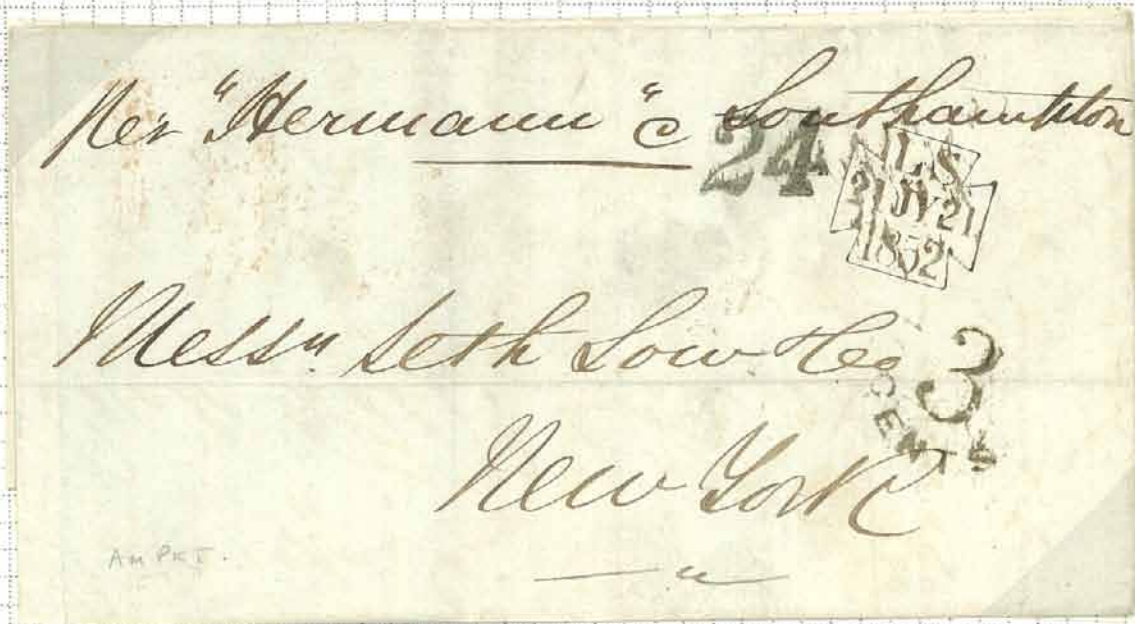 Per "Hermann" c Southampton
24
LS
21 JY 21
1852
Messrs. Seth Low & Co
3
CENTS
New York
AM PKT.